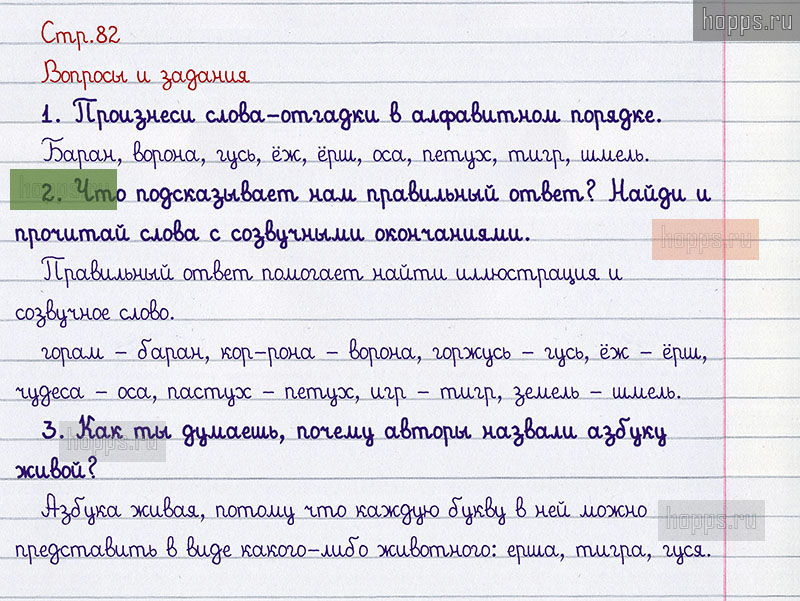 hopps.ru
Стр.82
Вопросы и задания
1. Произнеси слова-отгадки в алфавитном порядке.
Баран, ворона, гусь, ёж, ёрш, оса, петух, тигр, шмель.
hopps.ru
2. Что подсказывает нам правильный ответ? Найди и
прочитай слова с созвучными окончаниями.
hopps.ru
Правильный ответ помогает найти иллюстрация и
созвучное слово.
горам – баран, кор-рона – ворона, горжусь – гусь, ёж – ёрш,
чудеса – оса, пастух – петух, игр – тигр, земель – шмель.
3. Как ты думаешь, почему авторы назвали азбуку
hopps.ru
живой?
Азбука живая, потому что каждую букву в ней можно
hopps.ru
представить в виде какого-либо животного: ерша, тигра, гуся.